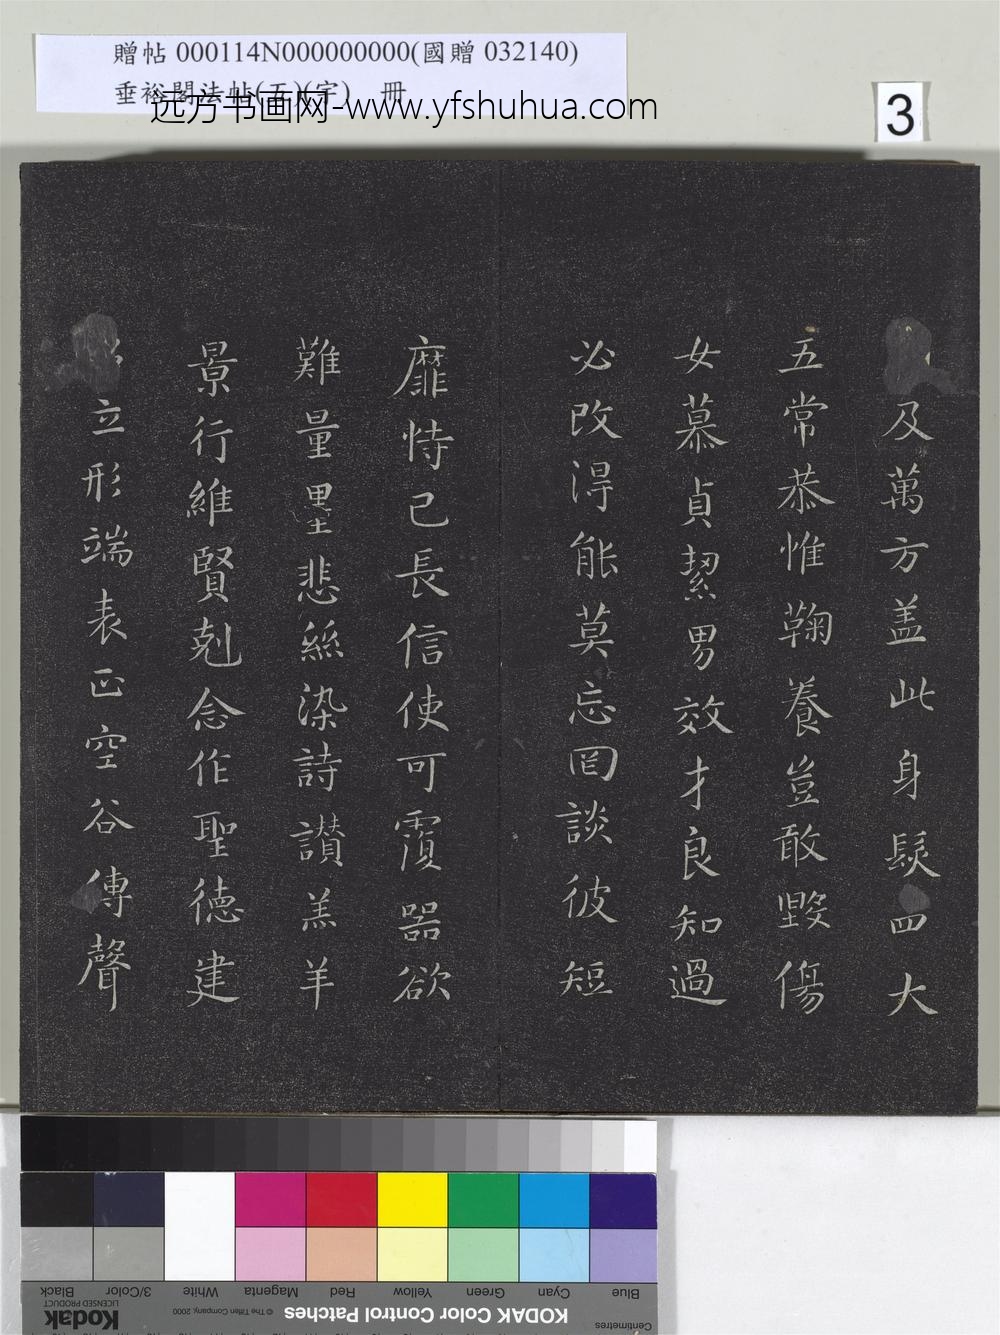 贈帖 000114N000000000(國贈 032140)
垂裕閣法帖(五)(字) 冊
远方书画网-www.yfshuhua.com
3
及萬方盖此身髮四大
五常恭惟鞠養豈敢毀傷
女慕貞絜男效才良知過
必改得能莫忘罔談彼短
靡恃己長信使可覆器欲
難量墨悲絲染詩讃羔羊
景行維賢剋念作聖德建
立形端表正空谷傳聲
Blue
Cyan
Green
Yellow
Red
Magenta
White
3/Color
Black
Centimetres
KODAK Color Control Patches
© The Tiffen Company, 2000
Kodak
LICENSED PRODUCT